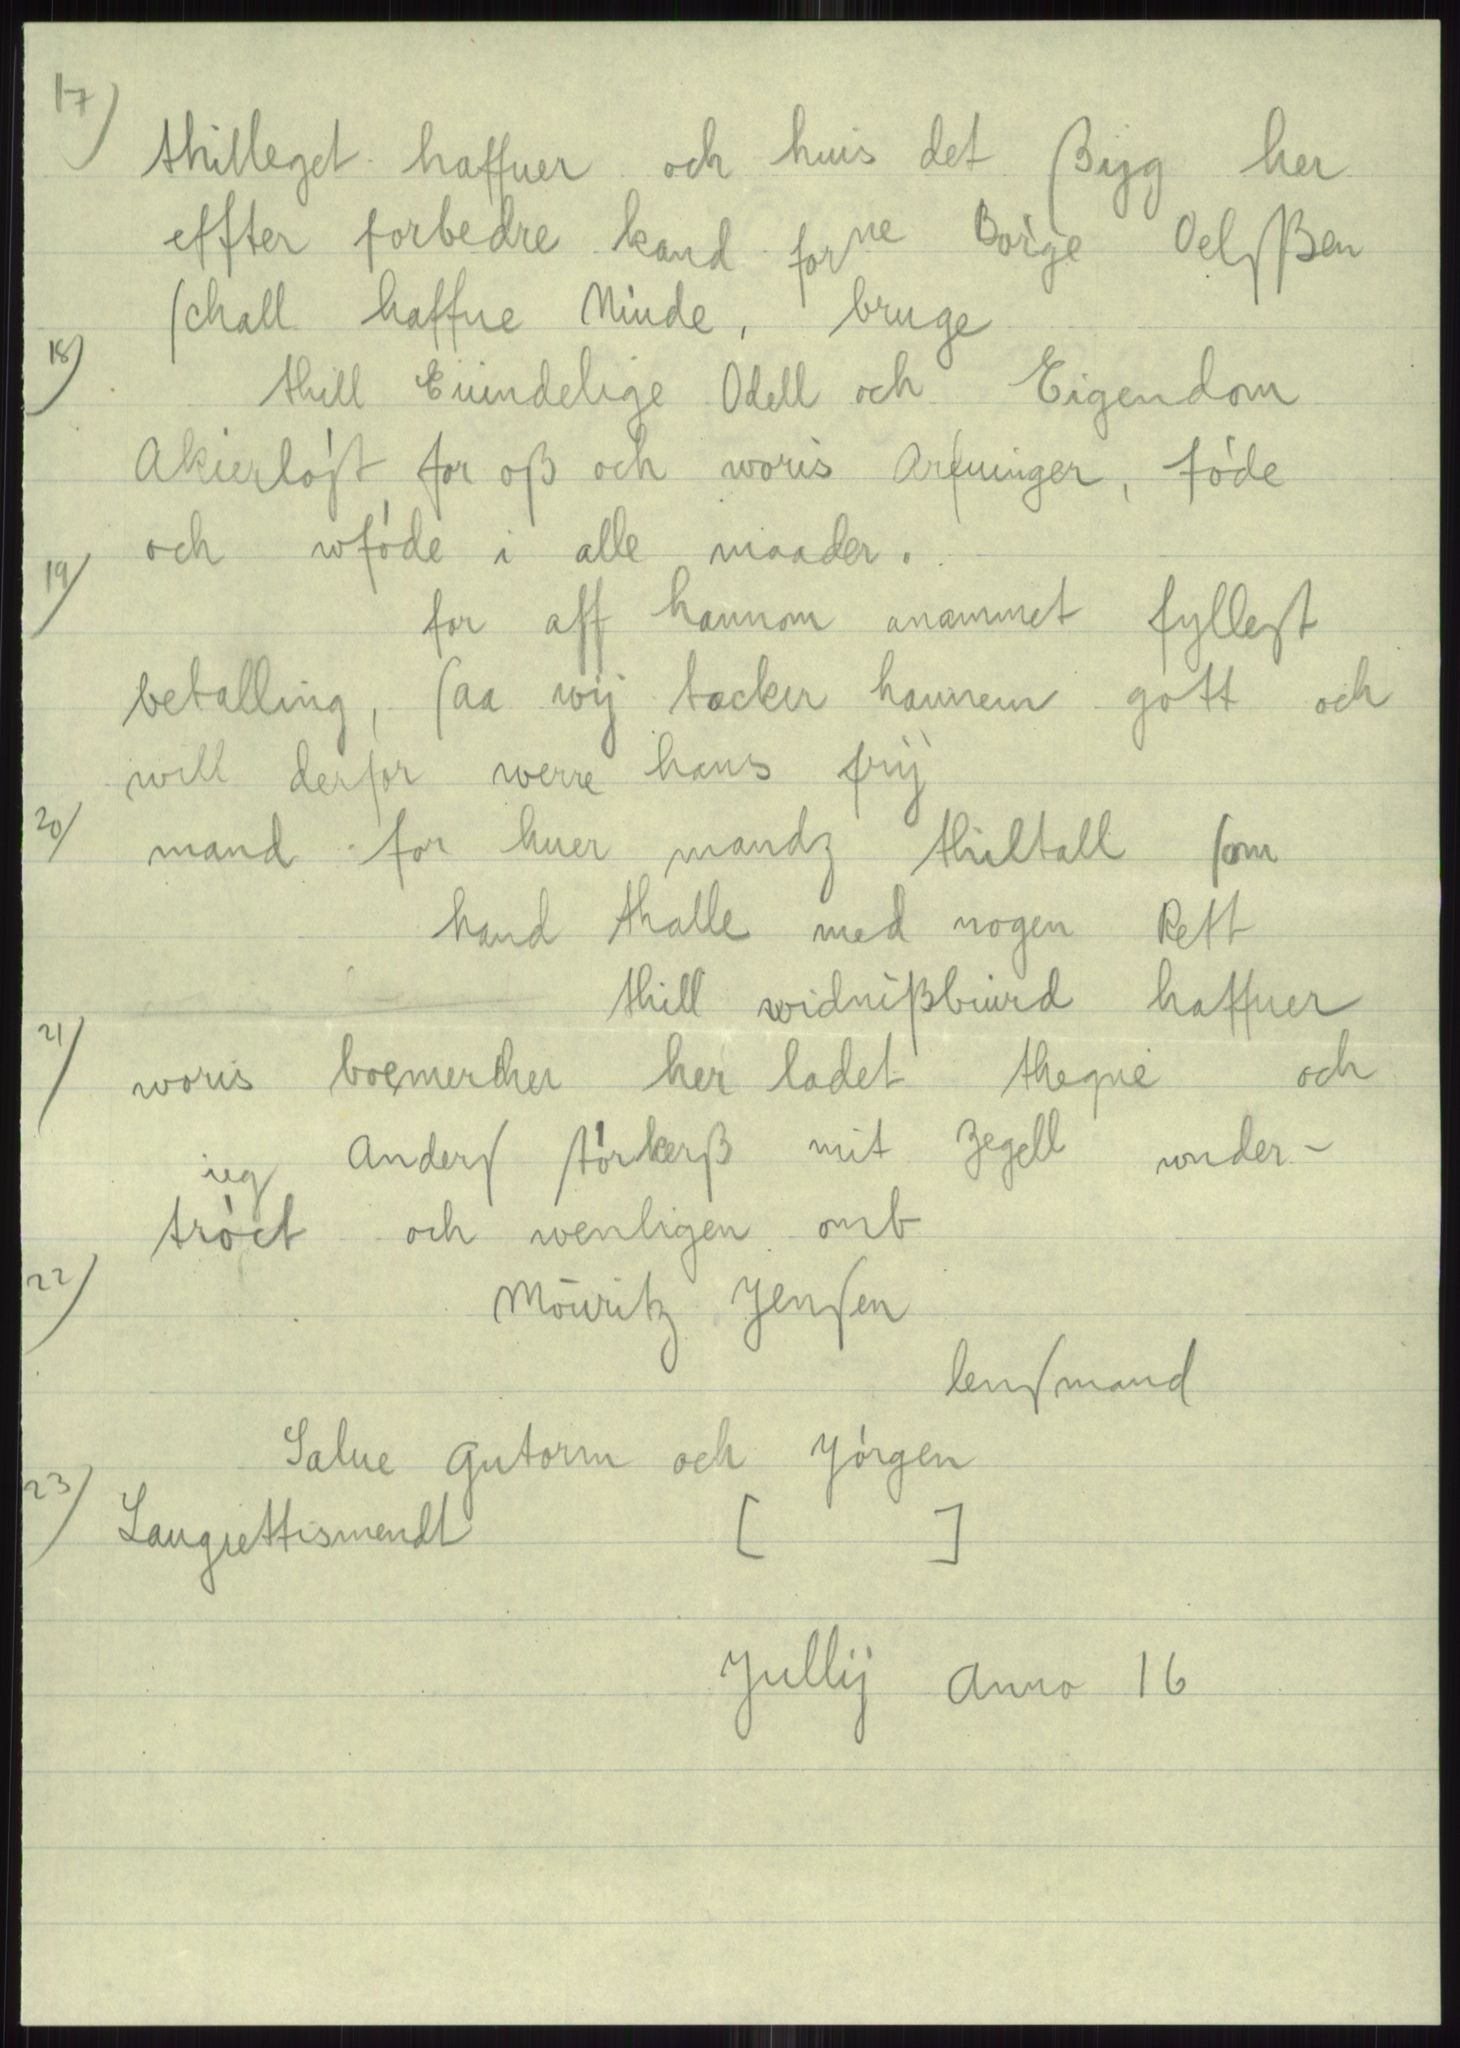 17) thilleget haffuer och huis det ßijg her
effter forbedre kand forne Börge Oelſßen
ſchall haffue Minde, bruge
18) thill Euindelige Odell och Eigendom
Akierlöſt for oß och woris Arfuinger, föde
och wföde i alle maader.
19) for aff hannom anammet fylleſt
betalling, ſaa wij tacker hannem gott och
will derfor werre hans frij
20) mand for huer mandz thiltall ſom
hand thalle med nogen Rett
thill widnißbiurd haffuer
21) woris boemercher her ladet theqne och
ieg Anderſ störkerß mit Zegell wnder-
tröct och wenligen omb
22) Möuritz Jenſen
lenſmand
Salue Gutorm och Jörgen
23) Laugrettismendt [ ]
Jullij Anno 16